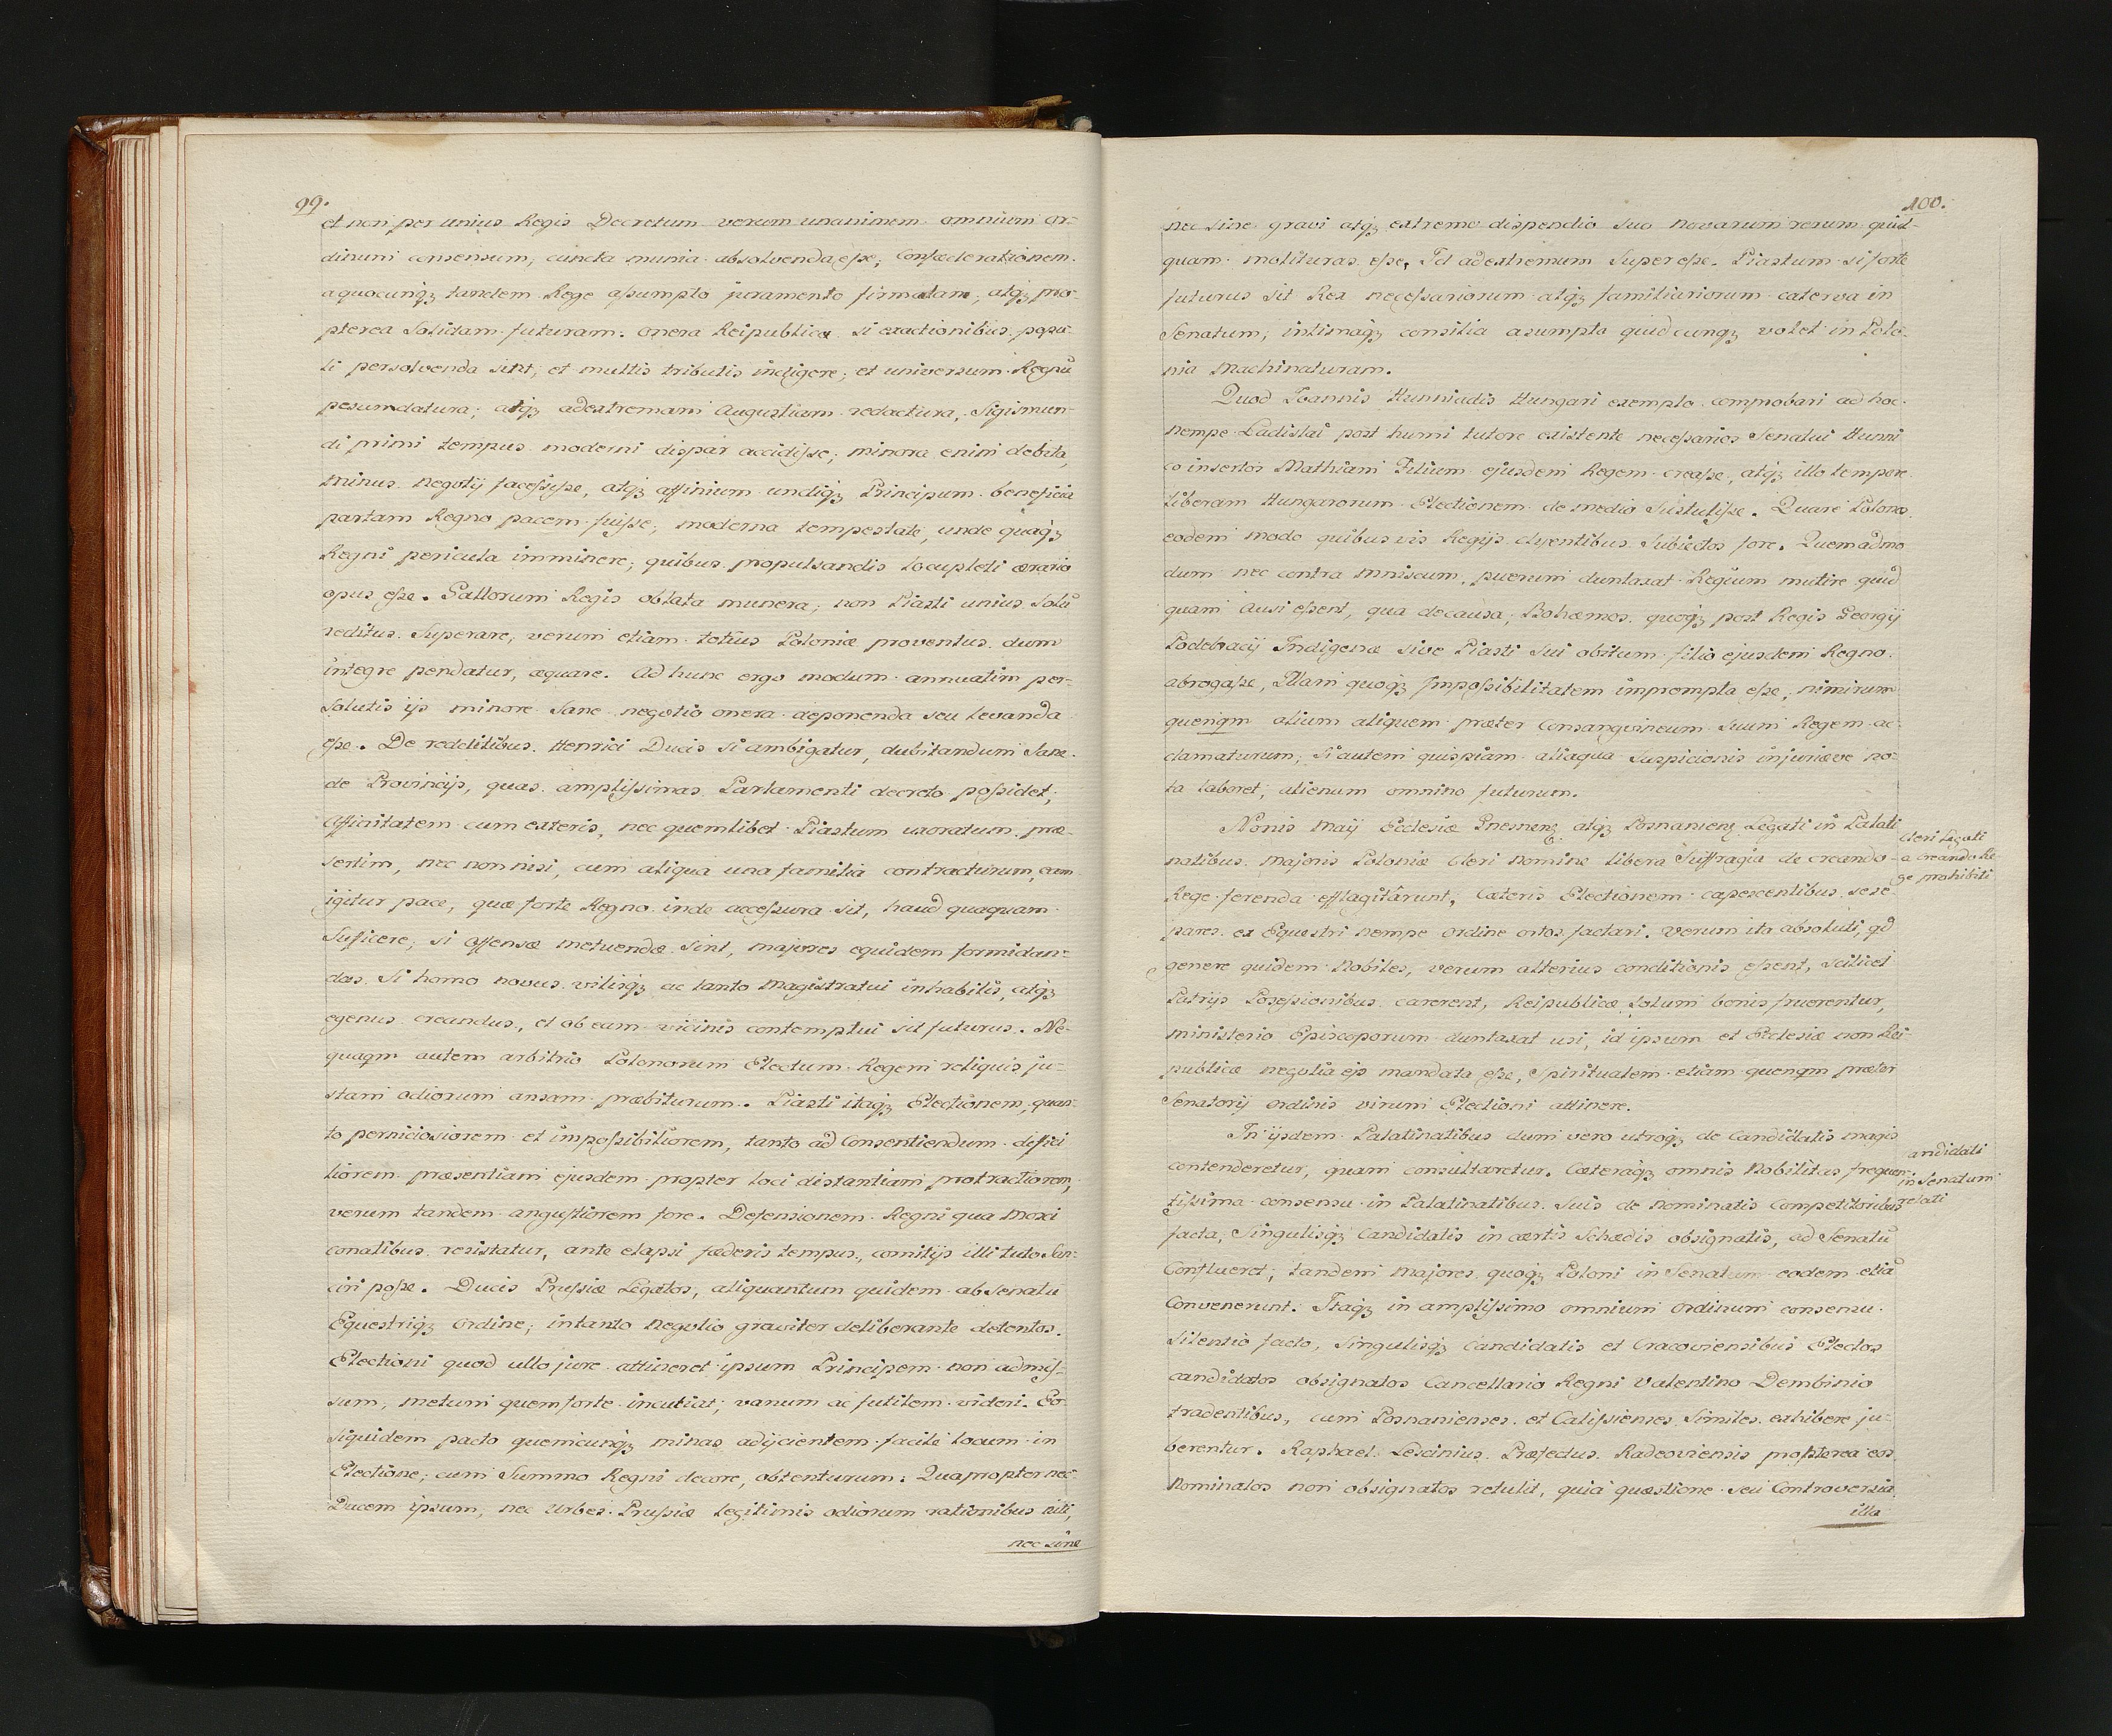 99.
et non per unius Regis Decretum verum unanimem omnium or-
dinum consensum, cuncta munia absolvenda eſse; Confœderationem
a quocunqꝫ tandem Rege aſsumpto juramento firmatam, atqꝫ pro-
pterea Solidam futuram. Onera Reipublicæ si exactionibus popu-
li persolvenda sint, et multis tributis indigere; et universum Regnū
pesumdatura; atqꝫ ad extremam Augustiam redactura, Sigismun-
di primi tempus moderni dispar accidiſse; minora enim debita,
minus negotij faceſsiſse, atqꝫ affinium undiqꝫ Principum beneficia
partam Regno pacem fuiſse; moderna tempestate, unde quaqꝫ
Regni pericula imminere; quibus propulsandis locupleti ærario
opus eſse. Gallorum Regis oblata munera; non Piasti unius Solū
reditus Superare, verum etiam totius Poloniæ proventus dum
integre pendatur, æquare. Ad hunc ergo modum annuatim per-
Solutis ijs minore Sane negotio onera deponenda seu levanda
eſse. De redditibus Henrici Ducis si ambigatur, dubitandum Sane
de Provincijs, quas ampliſsimas Parlamenti decreto poſsidet;
Affinitatem cum exteris, nec quemlibet Piastum uxoratum præ-
sertim, nec non nisi, cum aliqua una familia contracturum, cum
igitur pace, quæ forte Regno inde acceſsura sit, haud quaquam
Suficere; si offensæ metuendæ Sint, majores equidem formidan-
das Si homo novus vilisqꝫ ac tanto Magistratui inhabilis, atqꝫ
egenus creandus, et ob eum vicinis contemptui sit futurus. Ne-
quaqm autem arbitrio Polonorum Electum Regem reliquis ju-
stam odiorum ansam præbiturum. Piasti itaqꝫ Electionem, quan-
to perniciosiorem et impoſsibiliorem, tanto ad Consentiendum diffici
liorem præsentiam ejusdem propter loci distantiam protractiorem,
verum tandem angustiorem fore. Defensionem Regni qua Moxi
conatibus resistatur, ante elapsi fœderis tempus, comitijs illi tuto San-
ciri poſse. Ducis Pruſsiæ Legatos, aliquantum quidem ab Senatu
Equestriqꝫ Ordine, in tanto Negotio graviter deliberante detentos.
Electioni quod ullo jure attineret ipsum Principem non admiſ-
sum, metum quem forte incutiat; vanum ac futilem videri. Eo
siquidem pacto quemcunqꝫ minas adijcientem facile locum in
Electione, cum Summo Regni decore, obtenturum. Quapropter nec
Ducem ipsum, nec Urbes Pruſsiæ legitimis odiorum rationibus niti,
nec sine
100.
nec sine gravi atqꝫ extremo dispendio suo novarum rerum quid-
quam molituras eſse. Id ad extremum Supereſse. Piastum si forte
futurus sit Rex neceſsariorum atqꝫ familiariorum caterva in
Senatum, intimaqꝫ consilia asumpta quidcunqꝫ volet in Polo-
nia Machinaturam.
Quod Joannis Hunniadis Hungari exemplo comprobari ad hoc
nempe Ladislai post humi tutore existente neceſsarios Senatui Hunni
co insertos Mathiam Filium ejusdem Regem creaſse, atqꝫ illo tempore
liberam Hungarorum Electionem de medio Sustuliſse. Quare Polonos
eodem modo quibus vis Regijs clyentibus Subiectos fore. Quemadmo
dum nec contra Mniscum, puerum duntaxat Regium mutire quid
quam Ausi eſsent, qua de causa, Bohæmos quoqꝫ post Regis Georgij
Podebracij Indigenæ sive Piasti sui obitum filio ejusdem Regno
abrogaſse, Illam quoqꝫ Impoſsibilitatem imprompta eſse, nimirum
quenqm alium aliquem præter Consangvineum Suum Regem ac-
clamaturum; Si autem quispiam aliaqua suspicionis injuriæve no-
ta laboret, alienum omnino futurum.
Nonis Maij Ecclesiæ Gnesnenꝫ atqꝫ Posnanienꝫ Legati in Palati
natibus Majoris Poloniæ Cleri nomine libera Suffragia de creando
Rege ferenda efflagitârunt, Cæteris Electionem capescentibus sese
pares ex Equestri nempe Ordine ortos factari. Verum ita absoluti, qd
genere quidem Nobiles, verum alterius conditionis eſsent, scilicet
Patrijs Poseſsionibus carerent, Reipublicæ Solum bonis fruerentur,
ministerio Episcoporum duntaxat usi, id ipsum et Ecclesiæ non Rei-
publicæ negotia ejs mandata eſse, Spiritualem etiam quenqm præter
Senatorij Ordinis virum Electioni attinere.
Cleri Legati
a creando Re
ge prohibiti
In ijsdem Palatinatibus dum vero utroqꝫ de Candidatis magis
contenderetur, quam consultaretur. Cæteraqꝫ omnis Nobilitas frequen-
tiſsima consensu in Palatinatibus Suis de nominatis Competitoribus
facta, Singulisqꝫ Candidatis in certis Schædis obsignatis, ad Senatū
Conflueret; tandem Majores quoqꝫ Poloni in Senatum eodem etiā
Convenerunt. Itaqꝫ in ampliſsimo omnium ordinum consensu
Silentio facto, Singulisqꝫ Candidatis et Cracoviensibus Electos
candidatos obsignatos Cancellario Regni Valentino Dembinio
tradentibus, cum Posnanienses et Caliſsienses Similes exhibere ju-
berentur. Raphael Lescinius Præfectus Radeoviensis propterea eos
Nominatos non obsignatos retulit, quia quæstione seu Controversia
andidati
in Senatum
relati
illa